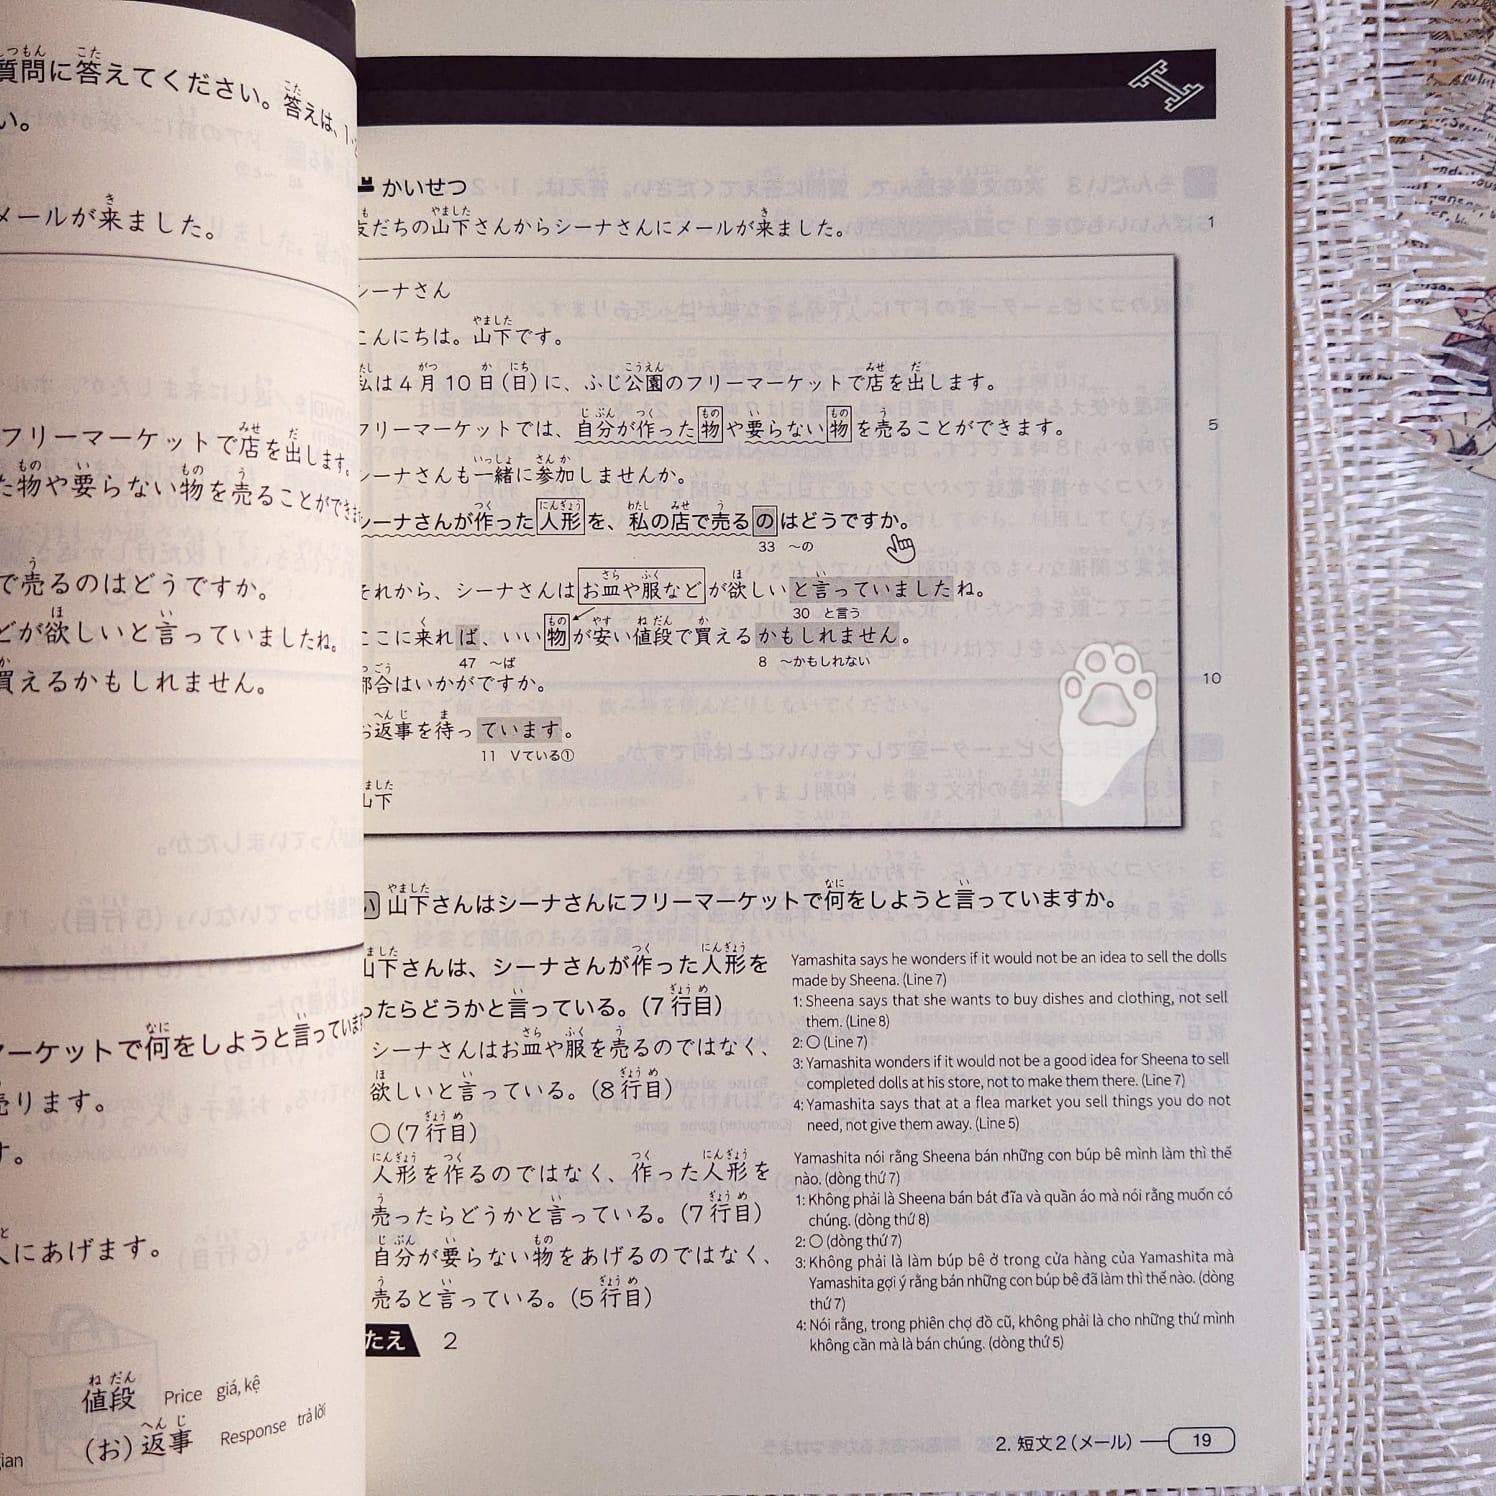 質問に答えてください。答えは、1・
い。
メールが来ました。
フリーマーケットで店を出します。
た物や要らない物を売ることができま
で売るのはどうですか。
どが欲しいと言っていましたね。
買えるかもしれません。
マーケットで何をしようと言っています
売ります。
す。
人にあげます。
値段 Price giá, kệ
(お)返事 Response trả lời
gian
かいせつ
友だちの山下さんからシーナさんにメールが来ました。 1
シーナさん
こんにちは。山下です。
私は4月10日(日)に、ふじ公園のフリーマーケットで店を出します。
フリーマーケットでは、自分が作った物や要らない物を売ることができます。 5
シーナさんも一緒に参加しませんか。
シーナさんが作った人形を、私の店で売るのはどうですか。
33 ～の
それから、シーナさんはお皿や服などが欲しいと言っていましたね。
30 と言う
ここに来れば、いい物が安い値段で買えるかもしれません。
47 ～ば 8 ～かもしれない
都合はいかがですか。 10
お返事を待っています。
11 Vている①
山下
い 山下さんはシーナさんにフリーマーケットで何をしようと言っていますか。
山下さんは、シーナさんが作った人形を
ったらどうかと言っている。(7行目)
シーナさんはお皿や服を売るのではなく、
欲しいと言っている。(8行目)
○(7行目)
人形を作るのではなく、作った人形を
売ったらどうかと言っている。(7行目)
自分が要らない物をあげるのではなく、
売ると言っている。(5行目)
たえ 2
Yamashita says he wonders if it would not be an idea to sell the dolls
made by Sheena. (Line 7)
1: Sheena says that she wants to buy dishes and clothing, not sell
them. (Line 8)
2: ○ (Line 7)
3: Yamashita wonders if it would not be a good idea for Sheena to sell
completed dolls at his store, not to make them there. (Line 7)
4: Yamashita says that at a flea market you sell things you do not
need, not give them away. (Line 5)
Yamashita nói rằng Sheena bán những con búp bê mình làm thì thế
nào. (dòng thứ 7)
1: Không phải là Sheena bán bát đĩa và quần áo mà nói rằng muốn có
chúng. (dòng thứ 8)
2: ○ (dòng thứ 7)
3: Không phải là làm búp bê ở trong cửa hàng của Yamashita mà
Yamashita gợi ý rằng bán những con búp bê đã làm thì thế nào. (dòng
thứ 7)
4: Nói rằng, trong phiên chợ đồ cũ, không phải là cho những thứ mình
không cần mà là bán chúng. (dòng thứ 5)
2. 短文2(メール) 19